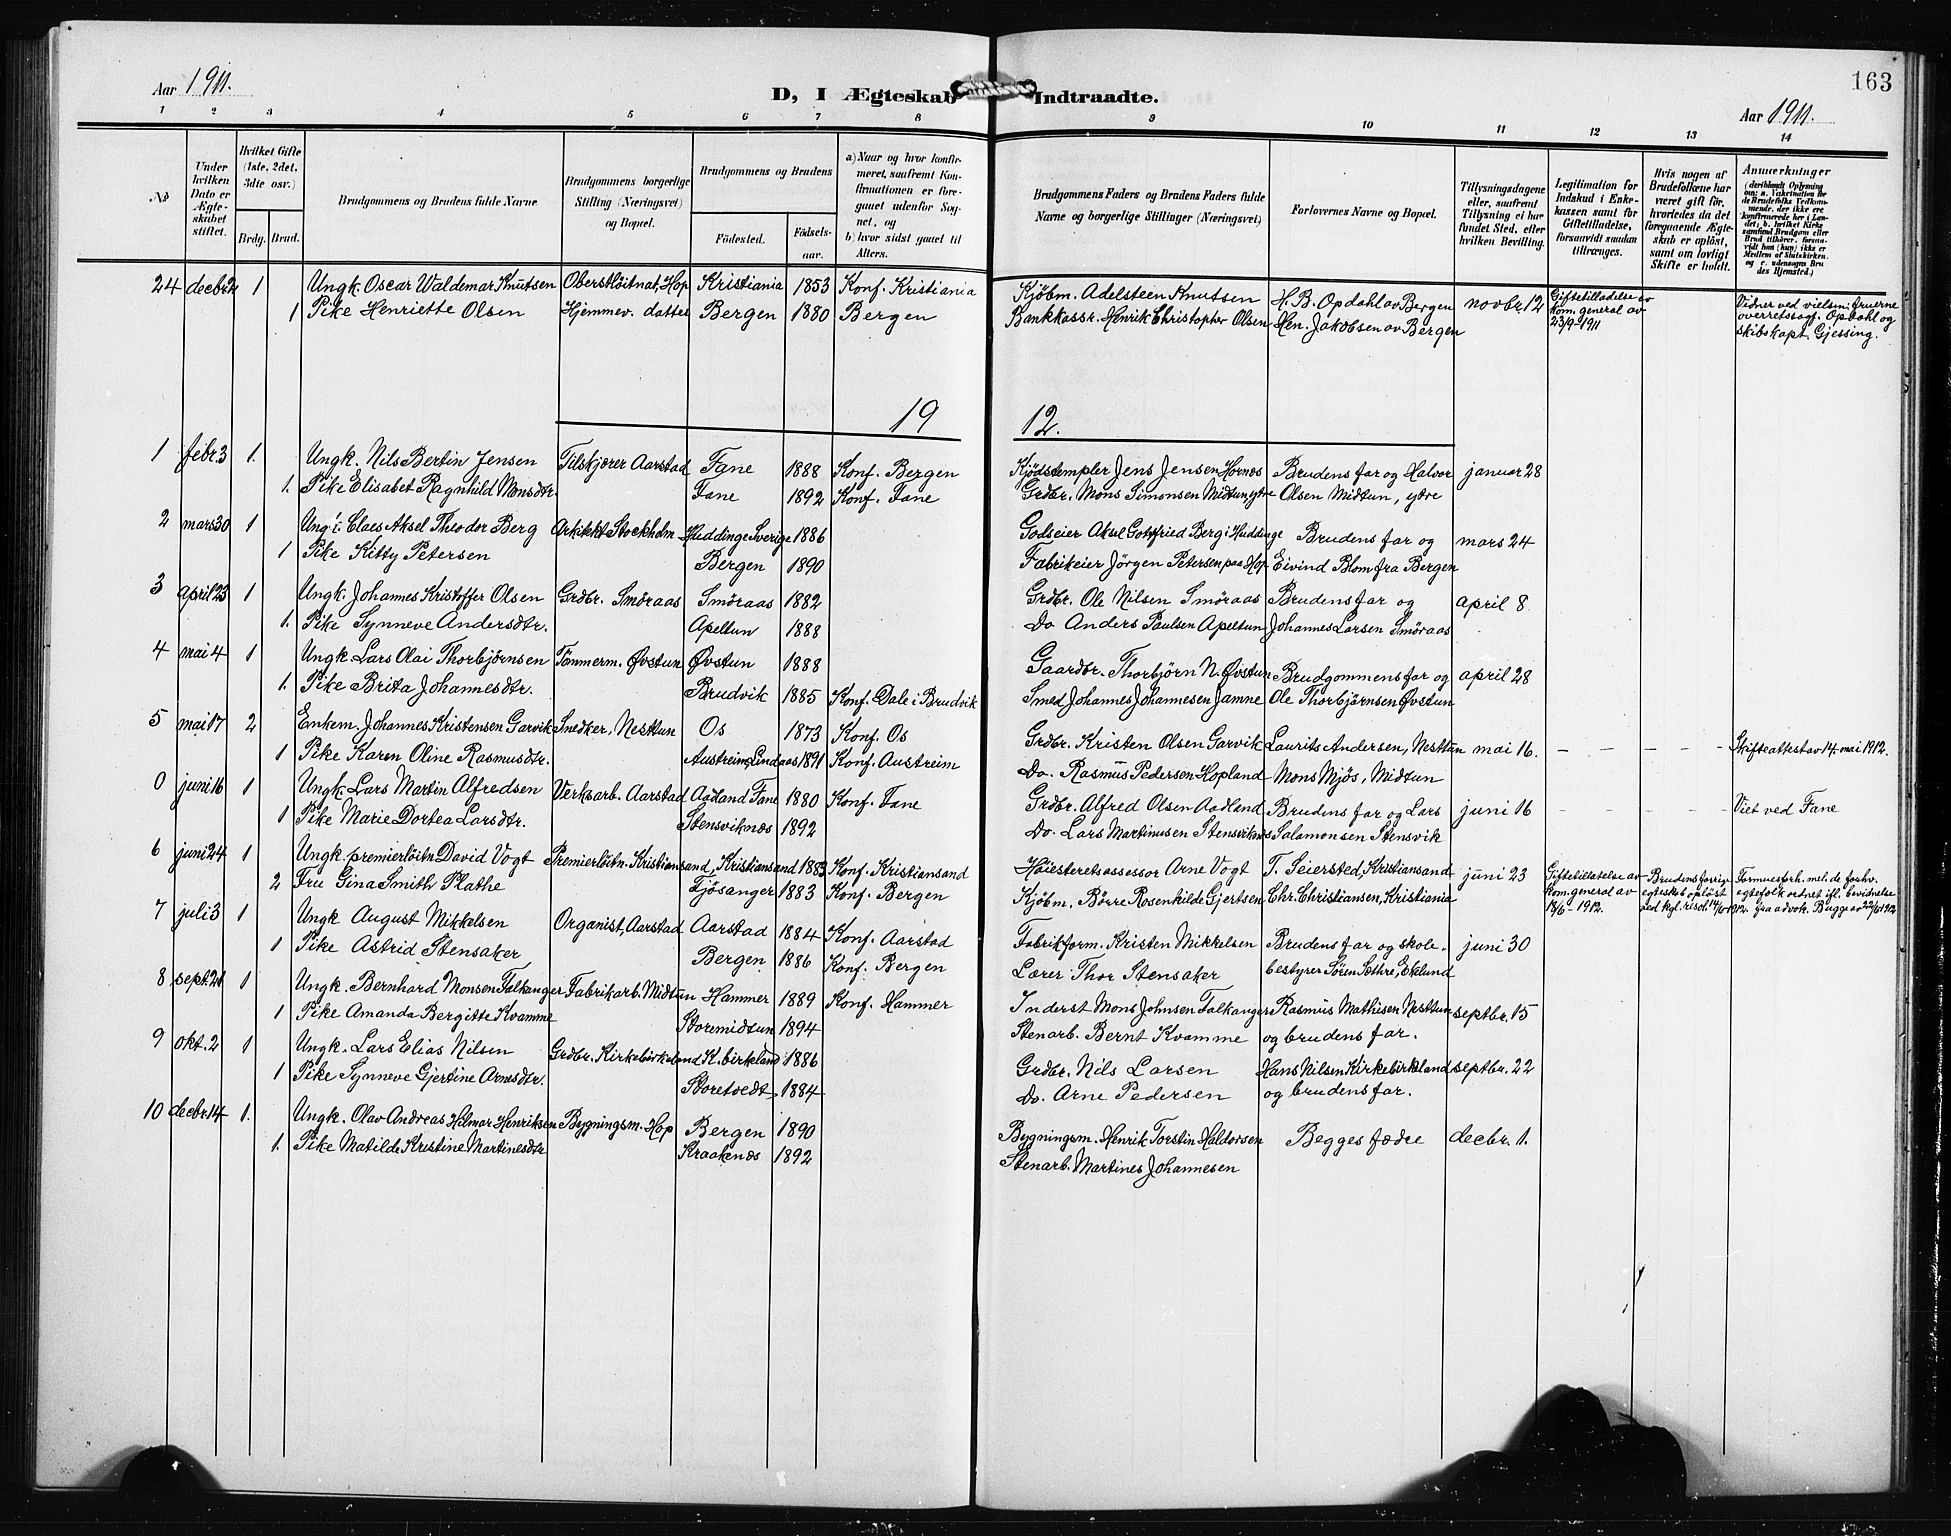 163
Aar 1911. D, I Ægteskab Indtraadte. Aar 1911.
1 2 3 4 5 6 7 8 9 10 11 12 13 14
No
Under hvilken Dato er Ægteskabet stiftet.
Hvilket Gifte (1ste, 2det, 3dte osv.)
Brdg. Brud.
Brudgommens og Brudens fulde Navne.
Brudgommens borgerlige Stilling (Næringsvei) og Bopæl.
Brudgommens og Brudens
Födested. Födselsaar.
a) Naar og hvor konfirmeret, saafremt Konfirmationen er foregaaet udenfor Sognet, og
b) hvor sidst gaaet til Alters.
Brudgommens Faders og Brudens Faders fulde Navne og borgerlige Stillinger (Næringsvei)
Forlovernes Navne og Bopæl.
Tillysningsdagene eller, saafremt Tillysning ei har fundet Sted, efter hvilken Bevilling.
Legitimation for Indskud i Enkekassen samt for Giftetilladelse, forsaavidt saadan tiltrænges.
Hvis nogen af Brudefolkene har været gift för, hvorledes da det foregaaende Ægteskab er oplöst, samt om lovligt Skifte er holdt.
Anmærkninger
24 decbr 2 1 Ungk. Oscar Waldemar Knutsen Oberstlöitnat, Hop Kristiania 1853 Konf. Kristiania Kjöbm. Adelsteen Knutsen H. B. Opdahl av Bergen novbr. 12 Giftetilladelse av kom. general av 23/9-1911 Vidner ved vielsen: fruerne overretssagf. Opdahl og skibskapt. Gjessing.
1 Pike Henriette Olsen Hjemmev. datter Bergen 1880 Bergen Bankkassr. Henrik Christopher Olsen Hen. Jakobsen av Bergen
19 12.
1 febr. 3 1. Ungk. Nils Bertin Jensen Tilskjærer Aarstad Fane 1888 Konf. Bergen Kjödstempler Jens Jensen Hornæs Brudens far og Halvor januar 28
1. Pike Elisabet Ragnhild Monsdtr. Fane 1892 Konf. Fane Grdbr. Mons Simonsen Midtun, ytre Olsen Midtun, ytre
2 mars 30 1 Ungk. Claes Aksel Theodor Berg Arkitekt Stockholm Huddinge Sverige 1886 Godseier Aksel Gottfried Berg i Huddinge Brudens far og mars 24
1 Pike Kitty Petersen Bergen 1890 Fabrikeier Jörgen Petersen paa Hop Eivind Blom fra Bergen
3 april 23 1 Ungk. Johannes Kristoffer Olsen Grdbr. Smöraas Smöraas 1882 Grdbr. Ole Nilsen Smöraas Brudens far og april 8
1. Pike Synneve Andersdtr. Apeltun 1888 Do Anders Paulsen Apeltun Johannes Larsen Smöraas
4 mai 4 1 Ungk. Lars Olai Thorbjörnsen Tömmerm. Øvstun Øvstun 1888 Gaardbr. Thorbjörn N. Øvstun Brudgommens far og april 28
1. Pike Brita Johannesdtr. Brudvik 1885 Konf. Dale i Brudvik Smed Johannes Johannesen Jamne Ole Thorbjörnsen Øvstun
5 mai 17 2 Enkem. Johannes Kristensen Garvik Snedker, Nesttun Os 1873 Konf. Os Grdbr. Kristen Olsen Garvik Laurits Andersen, Nesttun mai 16. – – – – Skifteattest av 14. mai 1912.
1 Pike Karen Oline Rasmusdtr. Austreim, Lindaas 1891 Konf. Austreim Do. Rasmus Pedersen Hopland Mons Mjös, Midtun
0 juni 16 1 Ungk. Lars Martin Alfredsen Verksarb. Aarstad Aadland Fane 1880 Konf. Fane Grdbr. Alfred Olsen Aadland Brudens far og Lars juni 16 – – – – Viet ved Fane
1 Pike Marie Dortea Larsdtr. Stensviknæs 1892 Do. Lars Martinusen Stensviknæs Salamonsen Stensvik
6 juni 24 1 Ungk. premierlöitn David Vogt Premierlöitn. Kristiansand, Kristiansand 1883 Konf. Kristiansand Höiesteretsassessor Arne Vogt T. Seiersted, Kristiansand juni 23 Giftetilladelse av kom. general av 13/6-1912. Brudens forrige egteskab oplöst ved kgl. resol. 14/6 1912. Formuesforh. mel. de forhv. egtefolk ordnet ifl. bevidnelse fra advok. Bugge av 22/6 1912
2 Fru Gina Smith Plathe Fjösanger 1883 Konf. Bergen Kjöbm. Börre Rosenkilde Gjertsen Chr. Christiansen, Kristiania
7 juli 3 1 Ungk August Mikkelsen Organist, Aarstad Aarstad 1884 Konf. Aarstad Fabrikform. Kristen Mikkelsen Brudens far og skole- juni 30
1 Pike Astrid Stensaker Bergen 1886 Konf. Bergen Lærer Thor Stensaker bestyrer Sören Sæthre, Ekelund
8 sept. 21 1 Ungk. Bernhard Monsen Falkanger Fabrikarb. Midtun Hammer 1889 Konf. Hammer Inderst Mons Johnsen Falkanger Rasmus Mathisen Nesttun septbr. 15
1 Pike Amanda Bergitte Kvamme Storemidtun 1894 Stenarb. Bernt Kvamme og brudens far.
9 okt. 2 1 Ungk. Lars Elias Nilsen Grdbr. Kirkebirkeland K. birkeland 1886 Grdbr. Nils Larsen Hans Nilsen Kirkebirkeland septbr. 22
1 Pike Synneve Gjertine Arnesdtr. Storetvedt 1884 Do. Arne Pedersen og brudens far.
10 decbr. 14 1. Ungk. Olav Andreas Hilmar Henriksen Bygningsm. Hop Bergen 1890 Bygningsm. Henrik Torstin Haldorsen Begges fædre decbr. 1.
1. Pike Matilde Kristine Martinesdtr Kraakenæs 1892 Stenarb. Martines Johannesen